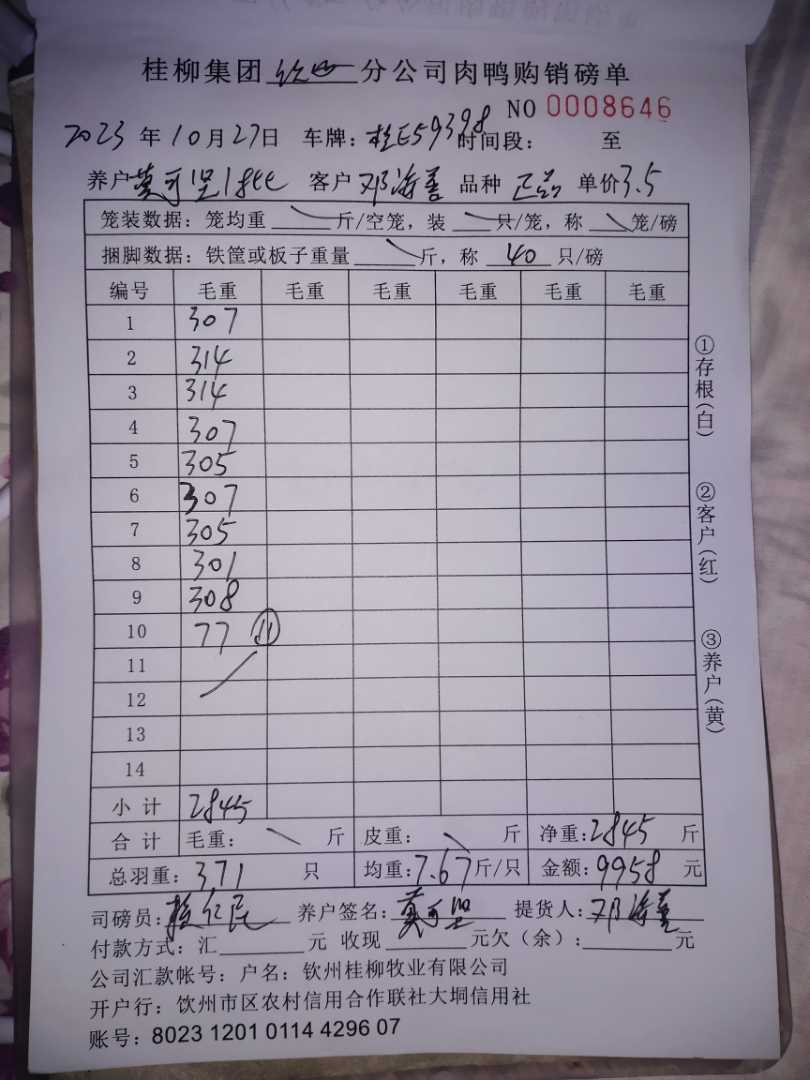 桂柳集团 分公司肉鸭购销磅单
NO 0008646
2023 年 10 月 27 日 车牌：桂E59398 时间段： 至
养户 莫可坚 客户 邓海善 品种 正品 单价 3.5
笼装数据：笼均重 斤/空笼，装 只/笼，称 笼/磅
捆脚数据：铁筐或板子重量 斤，称 40 只/磅
编号 毛重 毛重 毛重 毛重 毛重 毛重
1 307
2 314
3 314
4 307
5 305
6 307
7 305
8 301
9 308
10 77 11
11
12
13
14
小计 2845
合计 毛重： 斤 皮重： 斤 净重：2845 斤
总羽重：371 只 均重：7.67 斤/只 金额：9958 元
①存根(白)
②客户(红)
③养户(黄)
司磅员： 养户签名：莫可坚 提货人：邓海善
付款方式：汇 元 收现 元欠(余)： 元
公司汇款帐号：户名：钦州桂柳牧业有限公司
开户行：饮州市区农村信用合作联社大垌信用社
账号：8023 1201 0114 4296 07